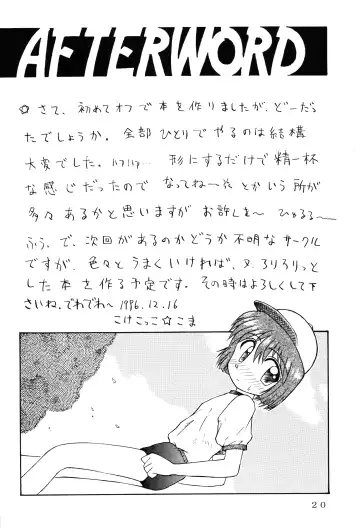 AFTERWORD
☆さて、初めてオフで本を作りましたが、どーだっ
たでしょうか。全部ひとりでやるのは結構
大変でした。ハフハフ… 形にするだけで精一杯
な感じだったので なってねーぞ とかいう所が
多々あるかと思いますが お許しを〜 ひゅるる〜
ふぅ。で、次回があるのかどうか不明なサークル
ですが、色々とうまくいければ、又、ろりろりっと
した本を作る予定です。その時はよろしくして下
さいね。でわでわ〜 1996.12.16
こけこっこ☆こま
20